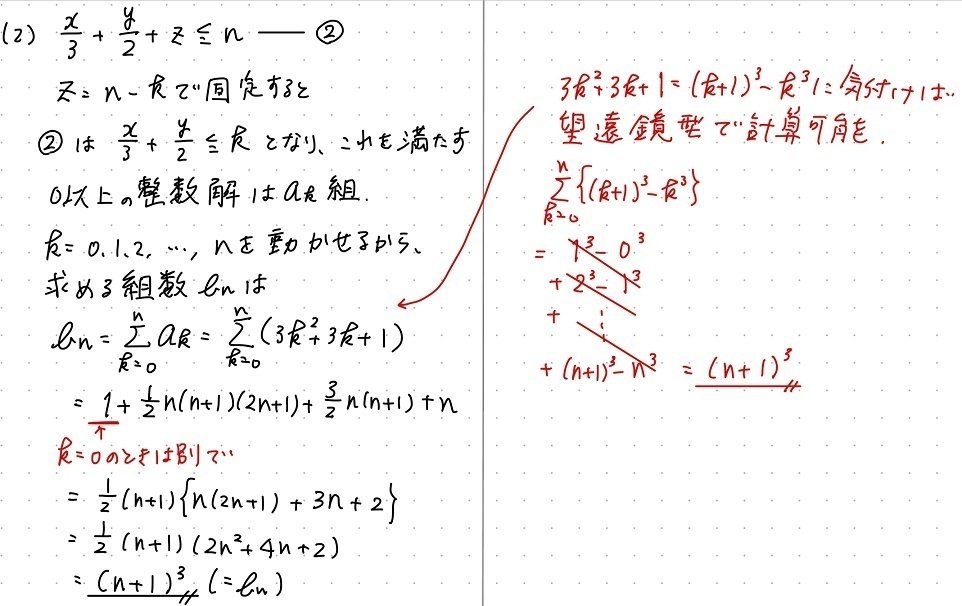 (2) x/3 + y/2 + z ≦ n ― ②
z = n - k で固定すると
②は x/3 + y/2 ≦ k となり、これを満たす
0以上の整数解は ak 組.
k = 0, 1, 2, …, n を動かせるから、
求める組数 bn は
bn = Σ[k=0→n] ak = Σ[k=0→n] (3k²+3k+1)
= 1 + 1/2 n(n+1)(2n+1) + 3/2 n(n+1) + n
↑
k=0のときは別で
= 1/2 (n+1){n(2n+1) + 3n + 2}
= 1/2 (n+1)(2n²+4n+2)
= (n+1)³ (= bn)
3k²+3k+1 = (k+1)³ - k³に気付ければ
望遠鏡型で計算可能.
Σ[k=0→n] {(k+1)³ - k³}
= 1³ - 0³
+ 2³ - 1³
+ ⋮
+ (n+1)³ - n³ = (n+1)³